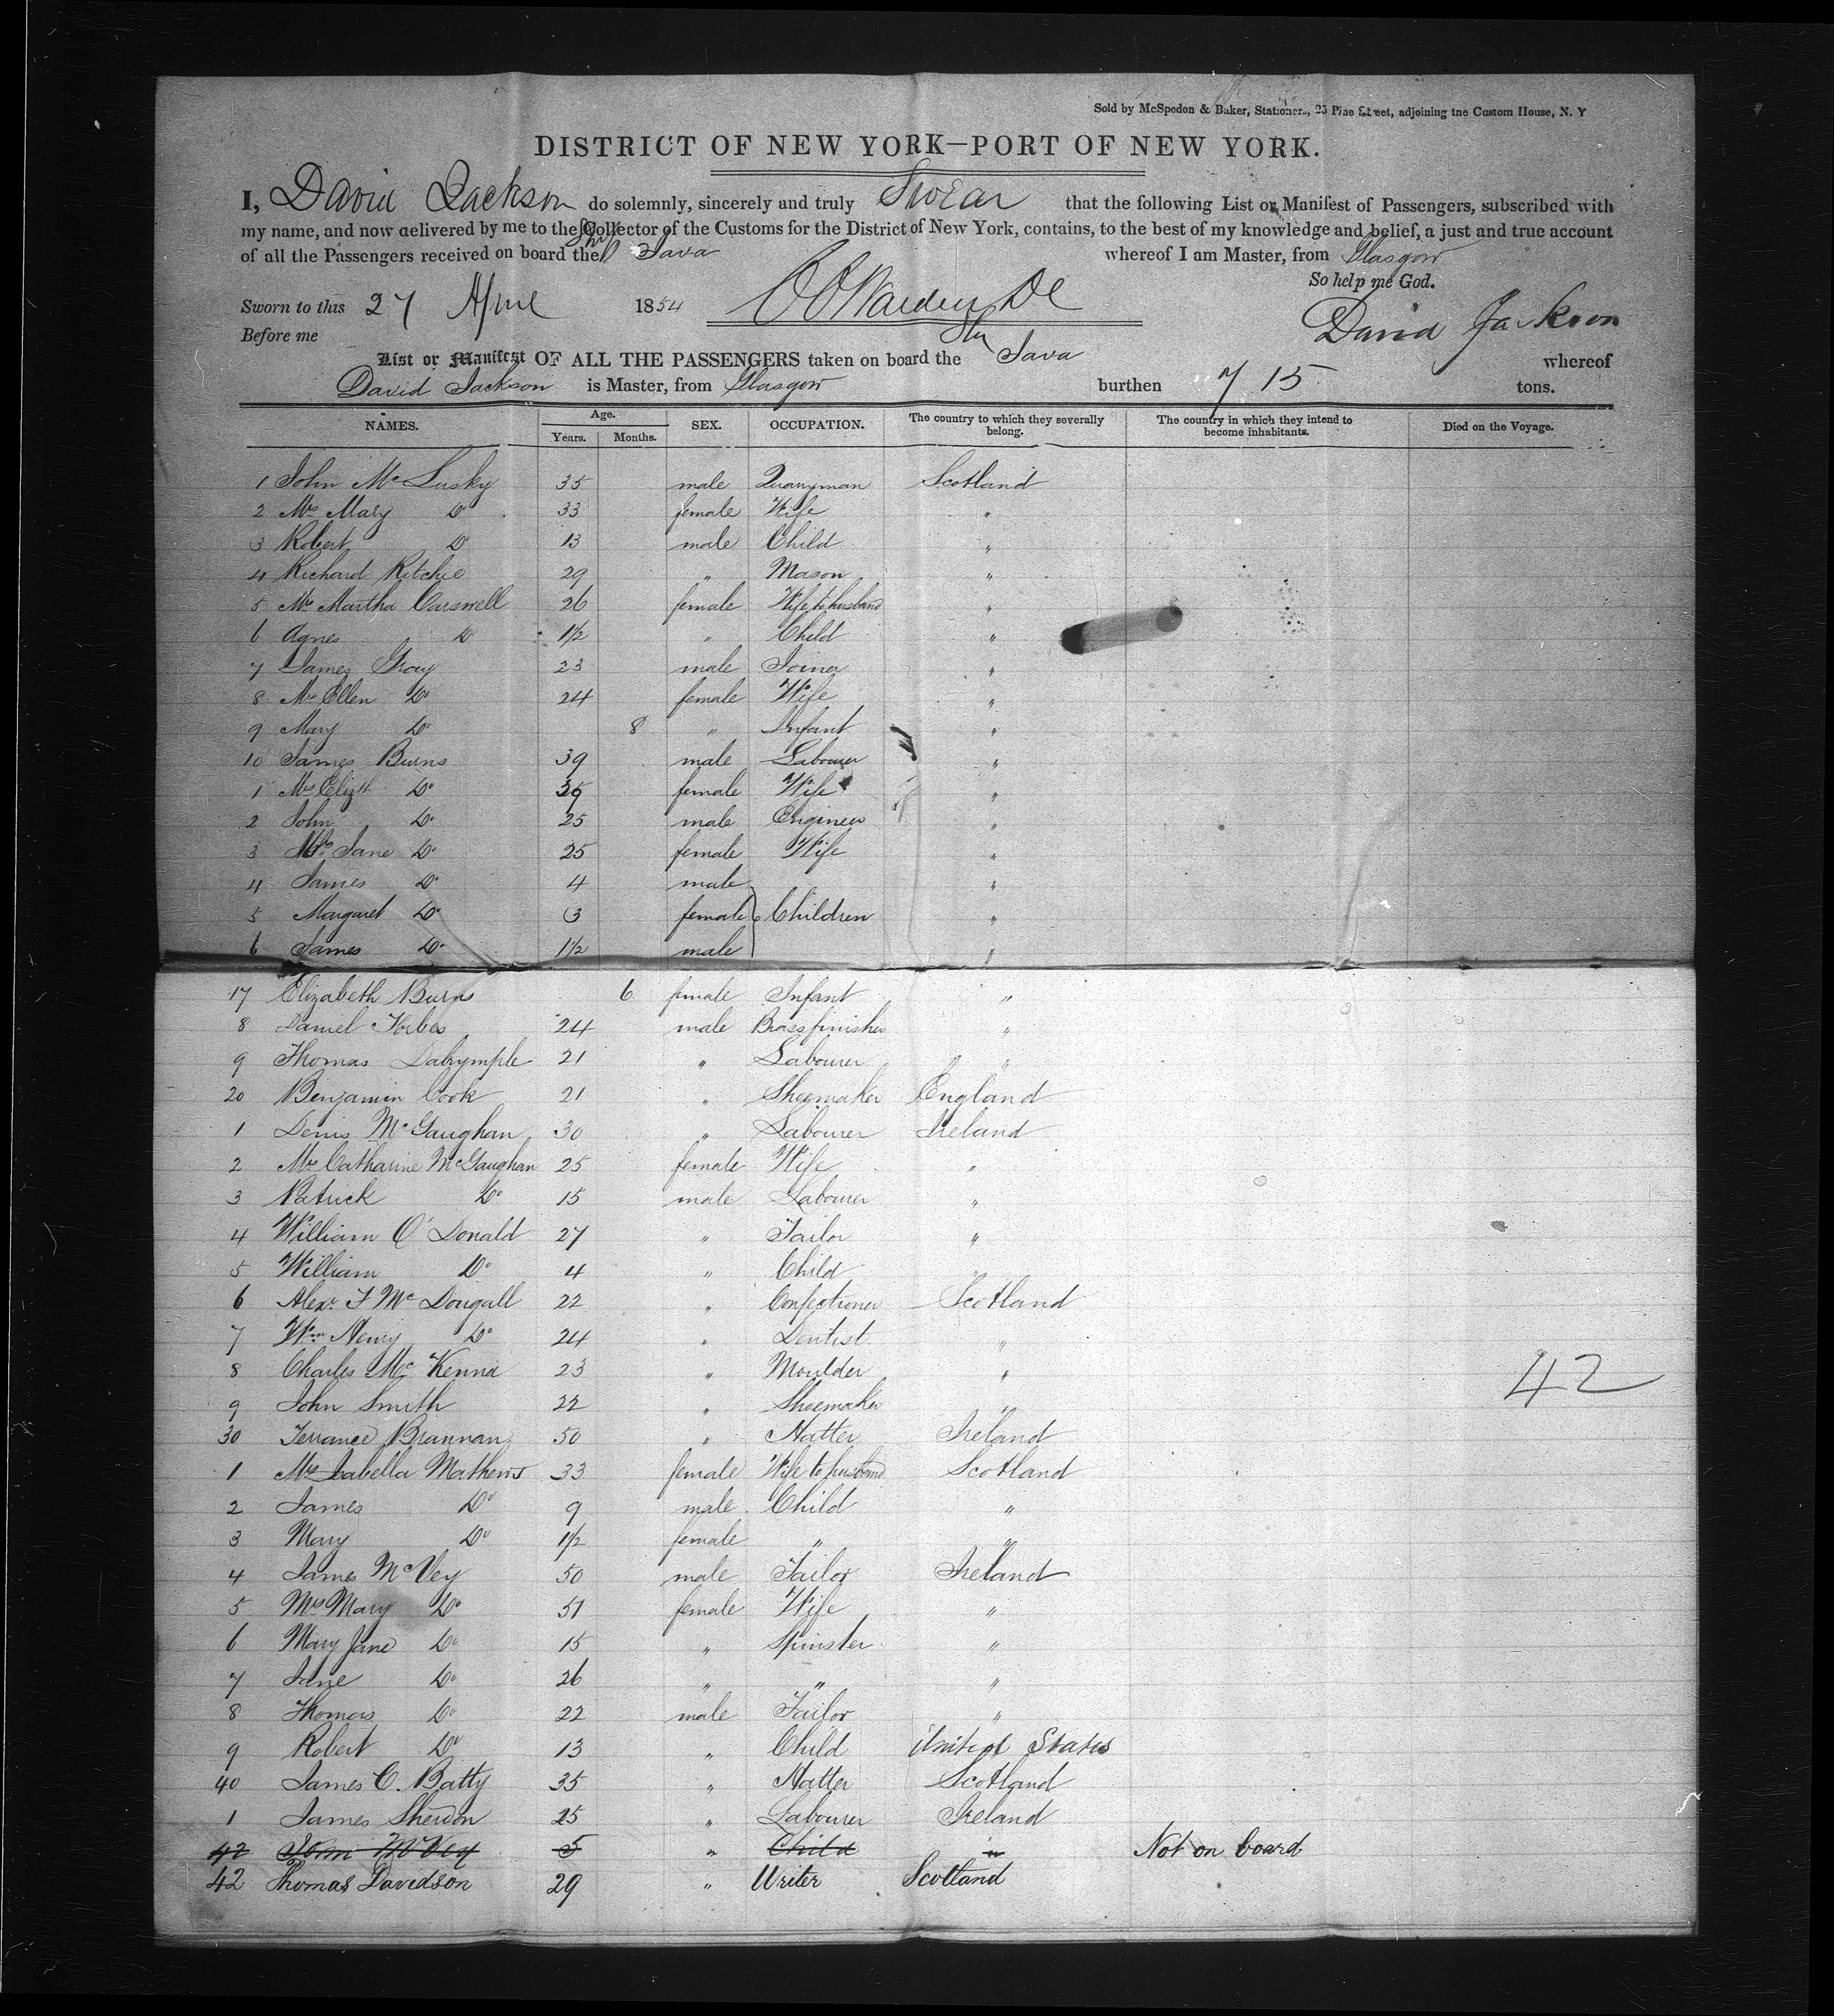 Sold by McSpedon & Baker, Stationers, 25 Pine Street, adjoining the Custom House, N. Y
DISTRICT OF NEW YORK—PORT OF NEW YORK.
I, David Jackson do solemnly, sincerely and truly Swear that the following List or Manifest of Passengers, subscribed with
my name, and now delivered by me to the Collector of the Customs for the District of New York, contains, to the best of my knowledge and belief, a just and true account
of all the Passengers received on board the Ship Java whereof I am Master, from Glasgow
So help me God.
Sworn to this 27 April 1854
David Jackson
Before me
List or Manifest OF ALL THE PASSENGERS taken on board the Java whereof
David Jackson is Master, from Glasgow burthen 715 tons.
NAMES. Age. Years. Months. SEX. OCCUPATION. The country to which they severally belong. The country in which they intend to become inhabitants. Died on the Voyage.
1 John McLusky 35 male Quarryman Scotland
2 Mrs Mary Do 33 female Wife "
3 Robert Do 13 male Child "
4 Richard Ritchie 29 " Mason "
5 Mrs Martha Carswell 26 female Wife to husband "
6 Agnes Do 1½ " Child "
7 James Gray 23 male Joiner "
8 Mrs Ellen Do 24 female Wife "
9 Mary Do 8 " Infant "
10 James Burns 39 male Labourer "
1 Mrs Elizth Do female Wife "
2 John Do 25 male Engineer "
3 Mrs Jane Do 25 female Wife "
4 James Do 4 male "
5 Margaret Do 3 female Children "
6 James Do 1½ male "
17 Elizabeth Burns 6 female Infant "
8 Daniel Forbes 24 male Brassfinisher "
9 Thomas Dalrymple 21 " Labourer "
20 Benjamin Cook 21 " Shoemaker England
1 Denis McGaughan 30 " Labourer Ireland
2 Mrs Catharine McGaughan 25 female Wife "
3 Patrick Do 15 male Labourer "
4 William O'Donald 27 " Tailor "
5 William Do 4 " Child "
6 Alexr F McDougall 22 " Confectioner Scotland
7 Wm Henry Do 24 " Dentist "
8 Charles McKenna 23 " Moulder "
42
9 John Smith 22 " Shoemaker "
30 Terrance Brannan 50 " Hatter Ireland
1 Mrs Isabella Mathews 33 female Wife to husband Scotland
2 James Do 9 male Child "
3 Mary Do 1½ female " "
4 James McVey 50 male Tailor Ireland
5 Mrs Mary Do 51 female Wife "
6 Mary Jane Do 15 " Spinster "
7 Jane Do 26 " " "
8 Thomas Do 22 male Tailor "
9 Robert Do 13 " Child United States
40 James C. Batty 35 " Hatter Scotland
1 James Sheridon 25 " Labourer Ireland
42 McVey 5 " Child " Not on board
42 Thomas Davidson 29 " Writer Scotland